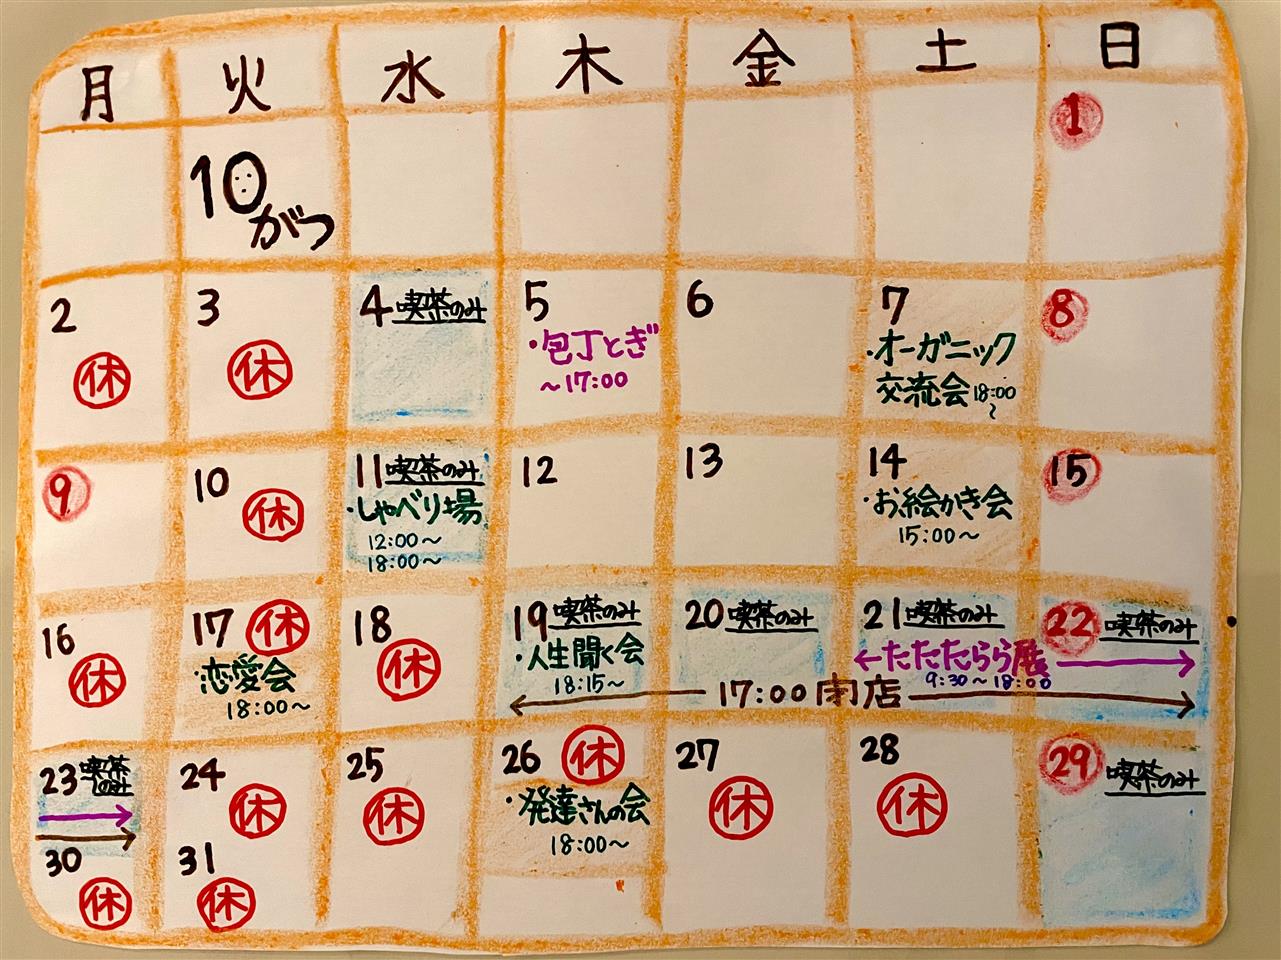 月 火 水 木 金 土 日
1
10
がつ
2
休
3
休
4 喫茶のみ
5
・包丁とぎ
～17:00
6
7
・オーガニック
交流会 18:00
～
8
9
10
休
11 喫茶のみ
・しゃべり場
12:00～
18:00～
12
13
14
・お絵かき会
15:00～
15
16
休
17 休
・恋愛会
18:00～
18
休
19 喫茶のみ
・人生聞く会
18:15～
20 喫茶のみ
21 喫茶のみ
←たたたらら展→
9:30～18:00
22 喫茶のみ
←17:00閉店→
23 喫茶
のみ
24
休
25
休
26 休
・発達さんの会
18:00～
27
休
28
休
29 喫茶のみ
30
休
31
休